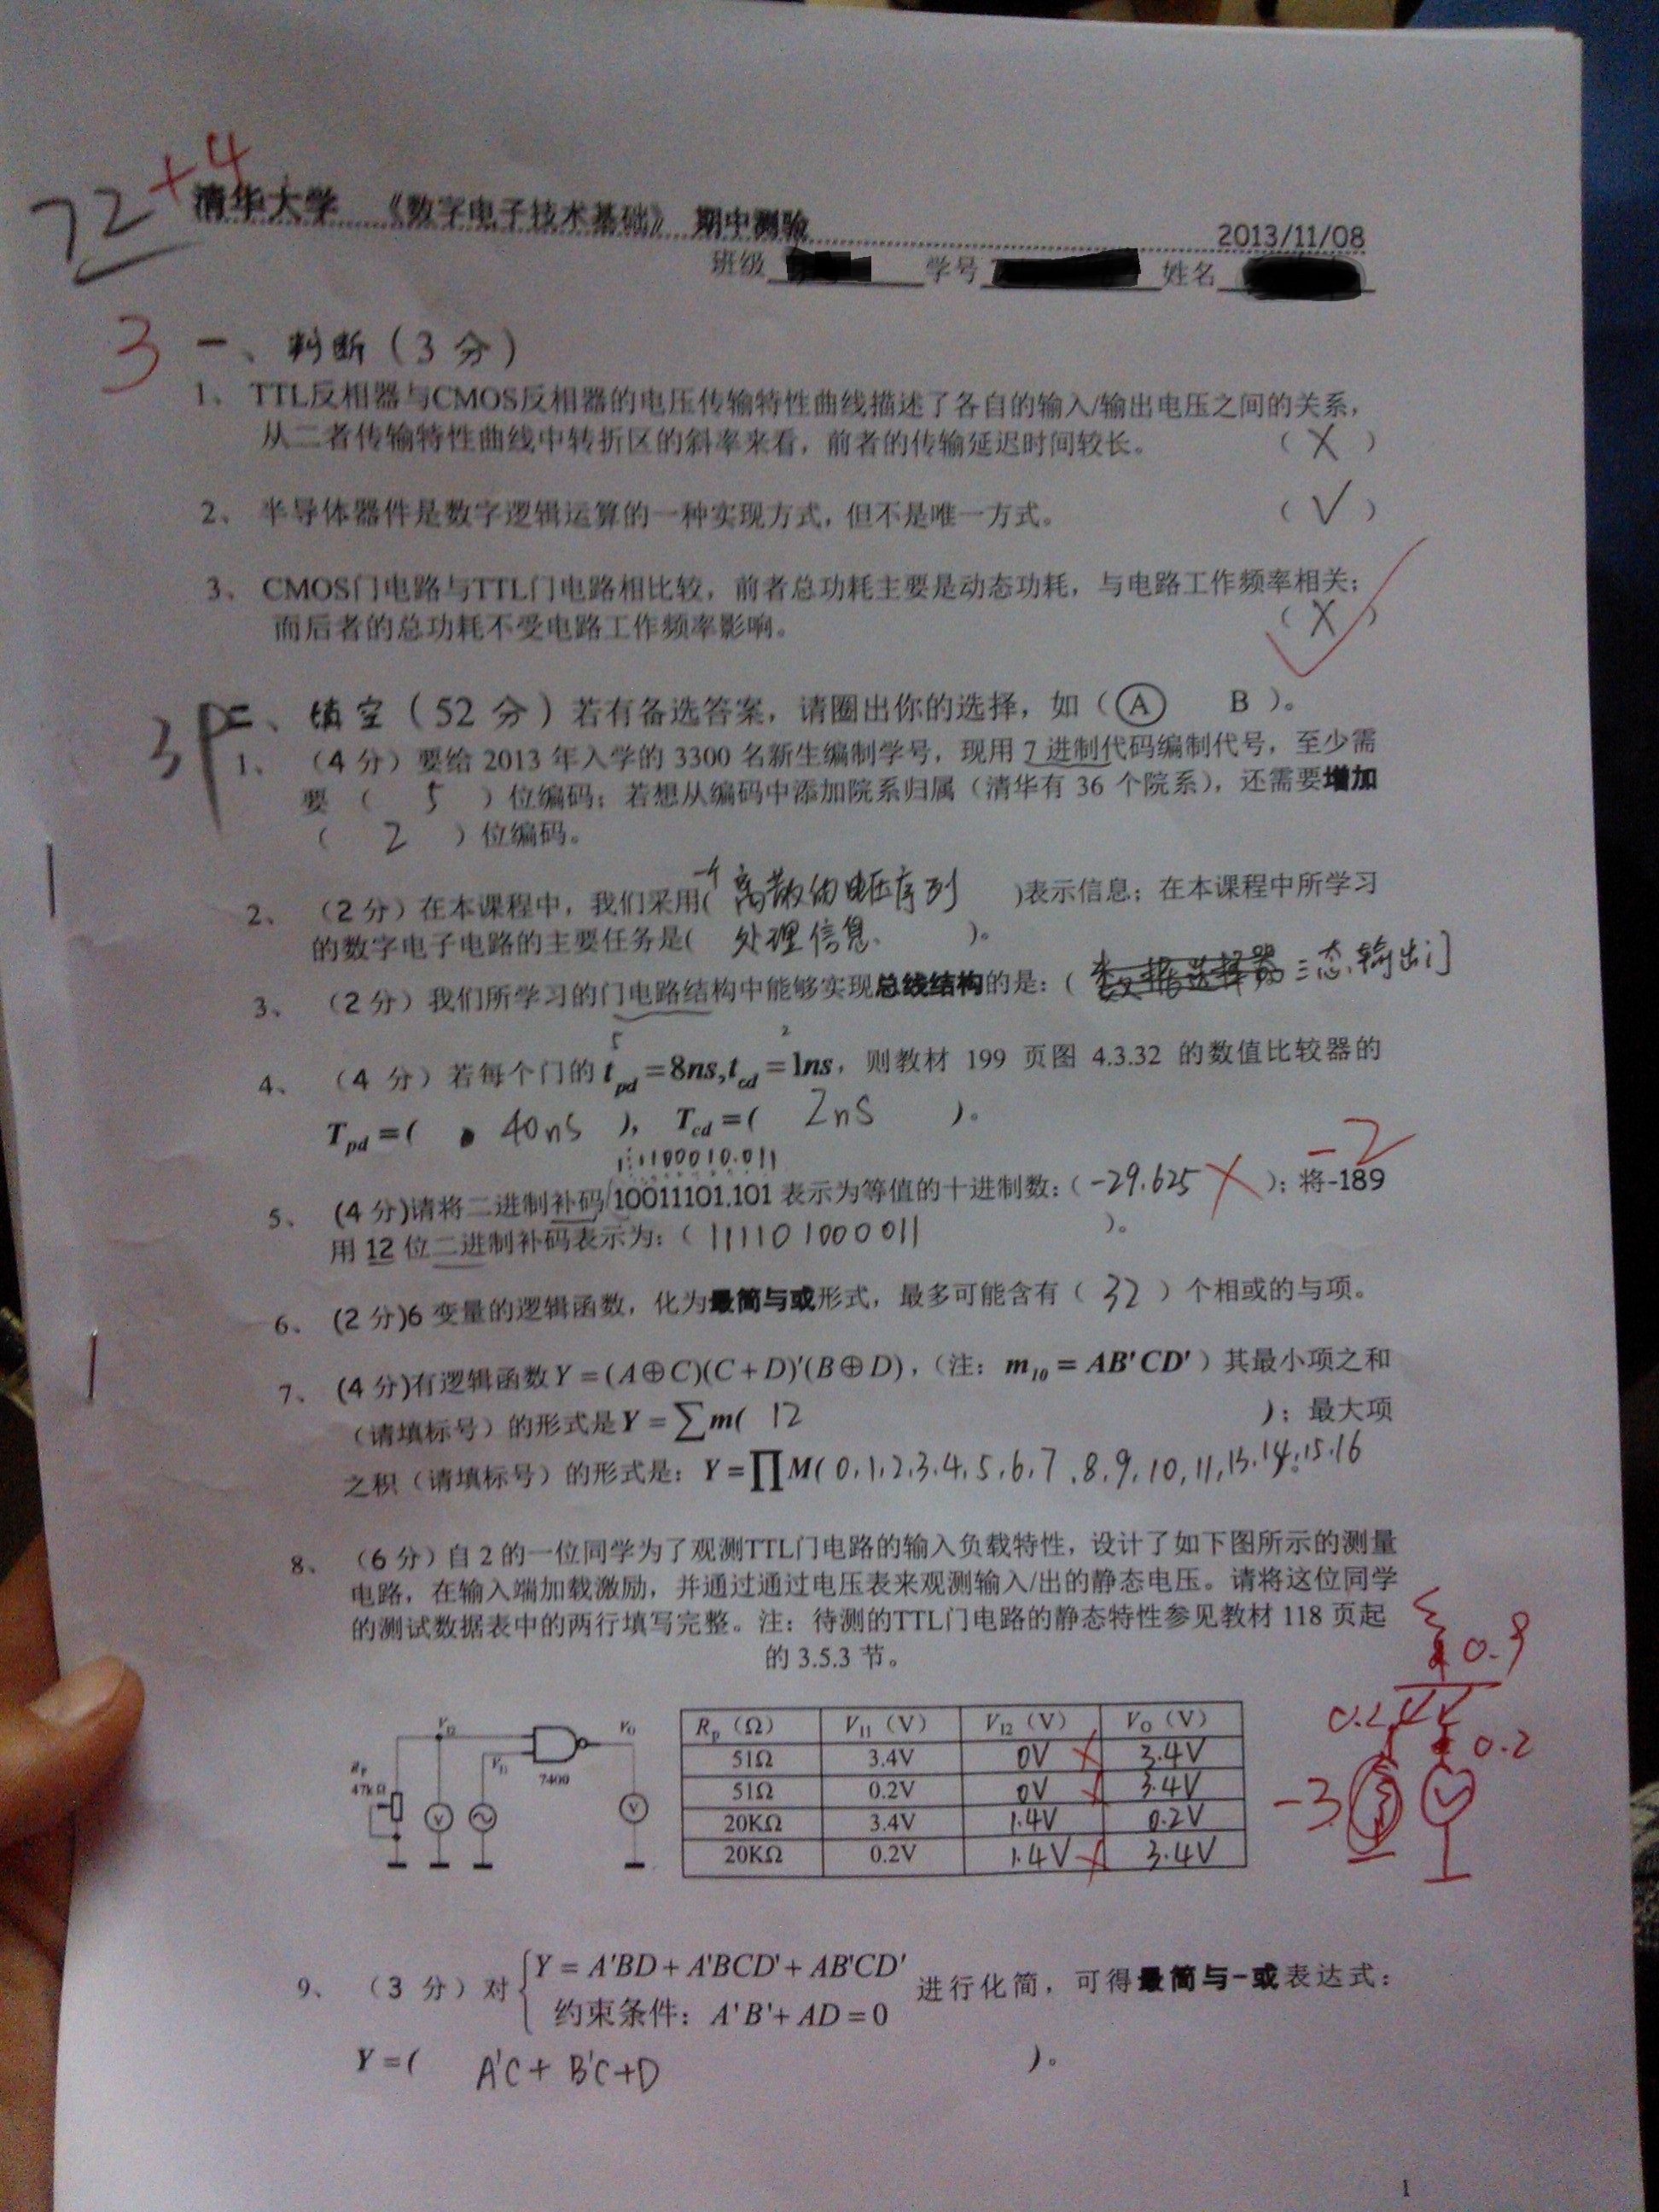 72 +4
清华大学 《数字电子技术基础》 期中测验
2013/11/08
班级 学号 姓名
3 一、判断(3分)
1、 TTL反相器与CMOS反相器的电压传输特性曲线描述了各自的输入/输出电压之间的关系,
从二者传输特性曲线中转折区的斜率来看,前者的传输延迟时间较长。 ( X )
2、 半导体器件是数字逻辑运算的一种实现方式,但不是唯一方式。 ( √ )
3、 CMOS门电路与TTL门电路相比较,前者总功耗主要是动态功耗,与电路工作频率相关;
而后者的总功耗不受电路工作频率影响。 ( X )
二、填空(52分)若有备选答案,请圈出你的选择,如(Ⓐ B)。
1、 (4分)要给2013年入学的3300名新生编制学号,现用7进制代码编制代号,至少需
要( 5 )位编码;若想从编码中添加院系归属(清华有36个院系),还需要增加
( 2 )位编码。
2、 (2分)在本课程中,我们采用( 一个离散的电压序列 )表示信息;在本课程中所学习
的数字电子电路的主要任务是( 处理信息. )。
3、 (2分)我们所学习的门电路结构中能够实现总线结构的是:( 数据选择器 三态输出门
5 2
4、 (4分)若每个门的 tpd=8ns,tcd=1ns,则教材 199 页图 4.3.32 的数值比较器的
Tpd=( 40ns ),Tcd=( 2ns )。
111100010.011
-2
5、 (4分)请将二进制补码10011101.101表示为等值的十进制数:( -29.625 X );将-189
用12位二进制补码表示为:( 111101000011 )。
6、 (2分)6变量的逻辑函数,化为最简与或形式,最多可能含有( 32 )个相或的与项。
7、 (4分)有逻辑函数Y=(A⊕C)(C+D)'(B⊕D),(注:m10=AB'CD')其最小项之和
(请填标号)的形式是Y=∑m( 12 );最大项
之积(请填标号)的形式是:Y=∏M( 0,1,2,3,4,5,6,7,8,9,10,11,13,14,15,16
8、 (6分)自2的一位同学为了观测TTL门电路的输入负载特性,设计了如下图所示的测量
电路,在输入端加载激励,并通过通过电压表来观测输入/出的静态电压。请将这位同学
的测试数据表中的两行填写完整。注:待测的TTL门电路的静态特性参见教材118页起
的3.5.3节。
RP 47kΩ VI2 VI1 7400 VO V V
RP(Ω) VI1(V) VI2(V) VO(V)
51Ω 3.4V 0V X 3.4V
51Ω 0.2V 0V X 3.4V
20KΩ 3.4V 1.4V 0.2V
20KΩ 0.2V 1.4V X 3.4V
0.9
0.2
0.2
-3
9、 (3分)对 Y=A'BD+A'BCD'+AB'CD' 进行化简,可得最简与-或表达式:
约束条件:A'B'+AD=0
Y=( A'C+B'C+D )。
1